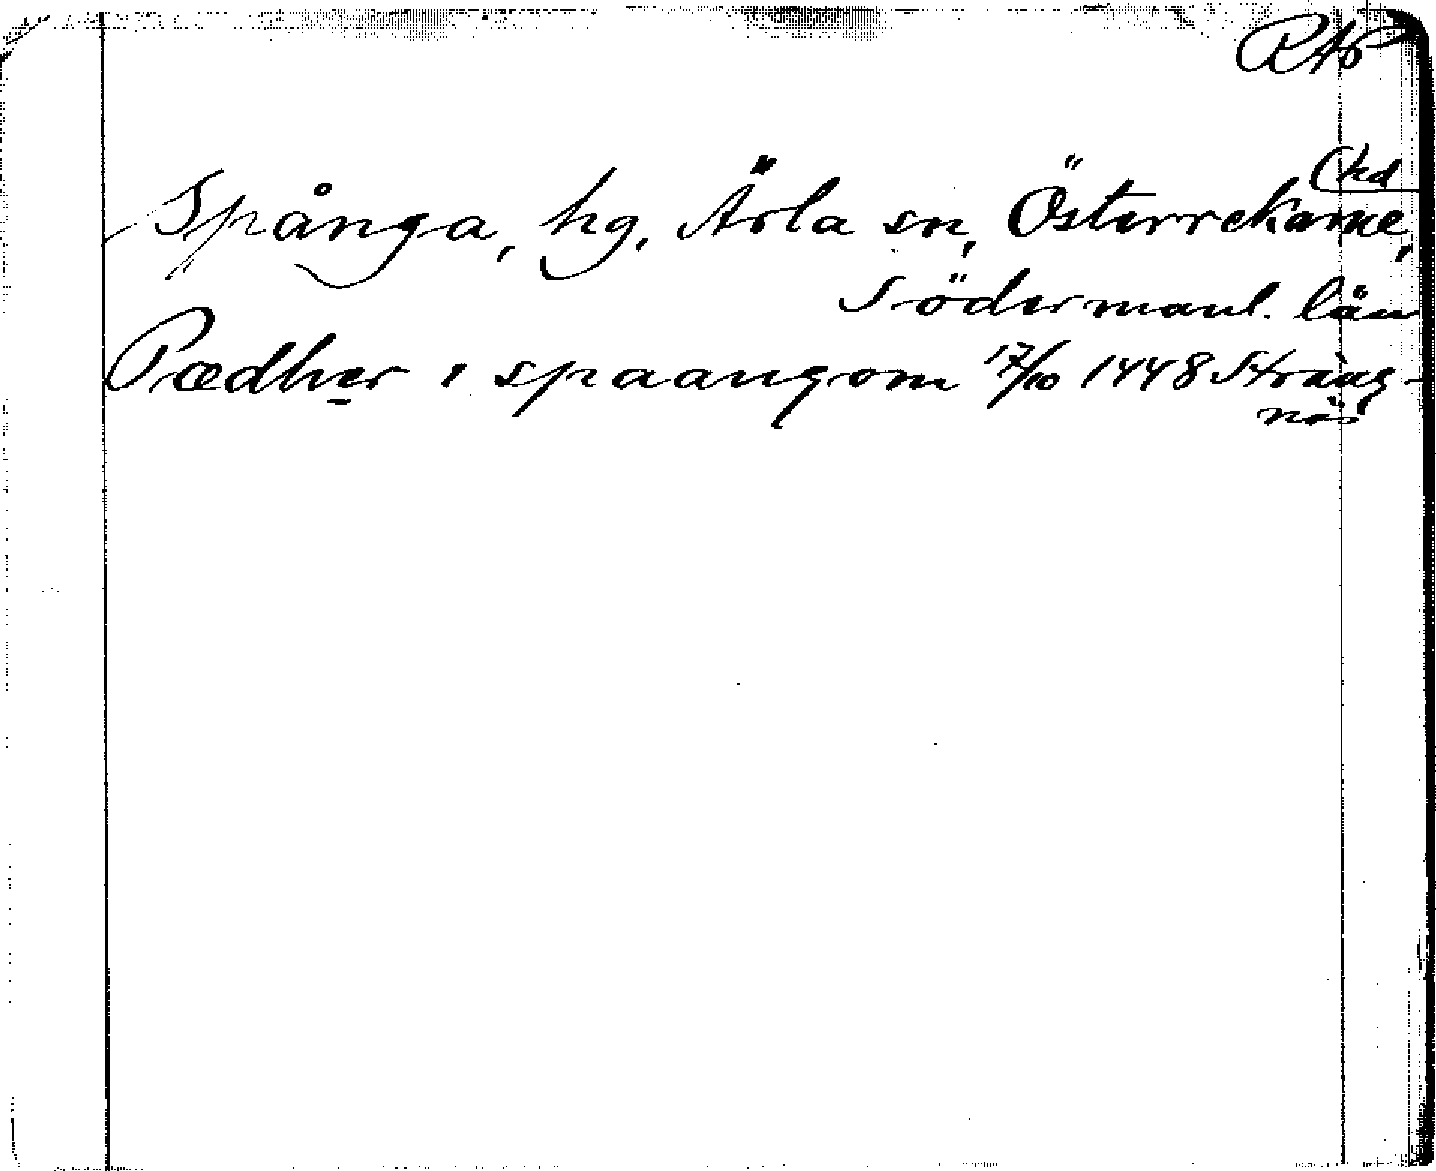 RAp
Spånga, hg, Ärla sn, Österrekarne,
(hd
Södermanl. län
Pædher i spaangom 17/10 1448 Sträng-
näs